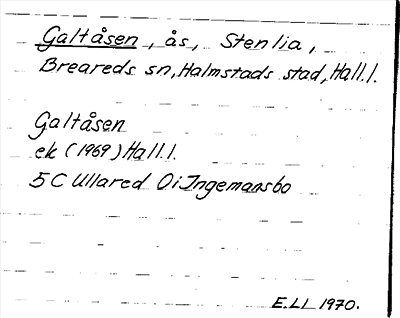 Galtåsen, ås, Stenlia,
Breareds sn, Halmstads stad, Hall.l.
Galtåsen
ek (1969) Hall.l.
5C Ullared 0i Ingemansbo
E.LL 1970.